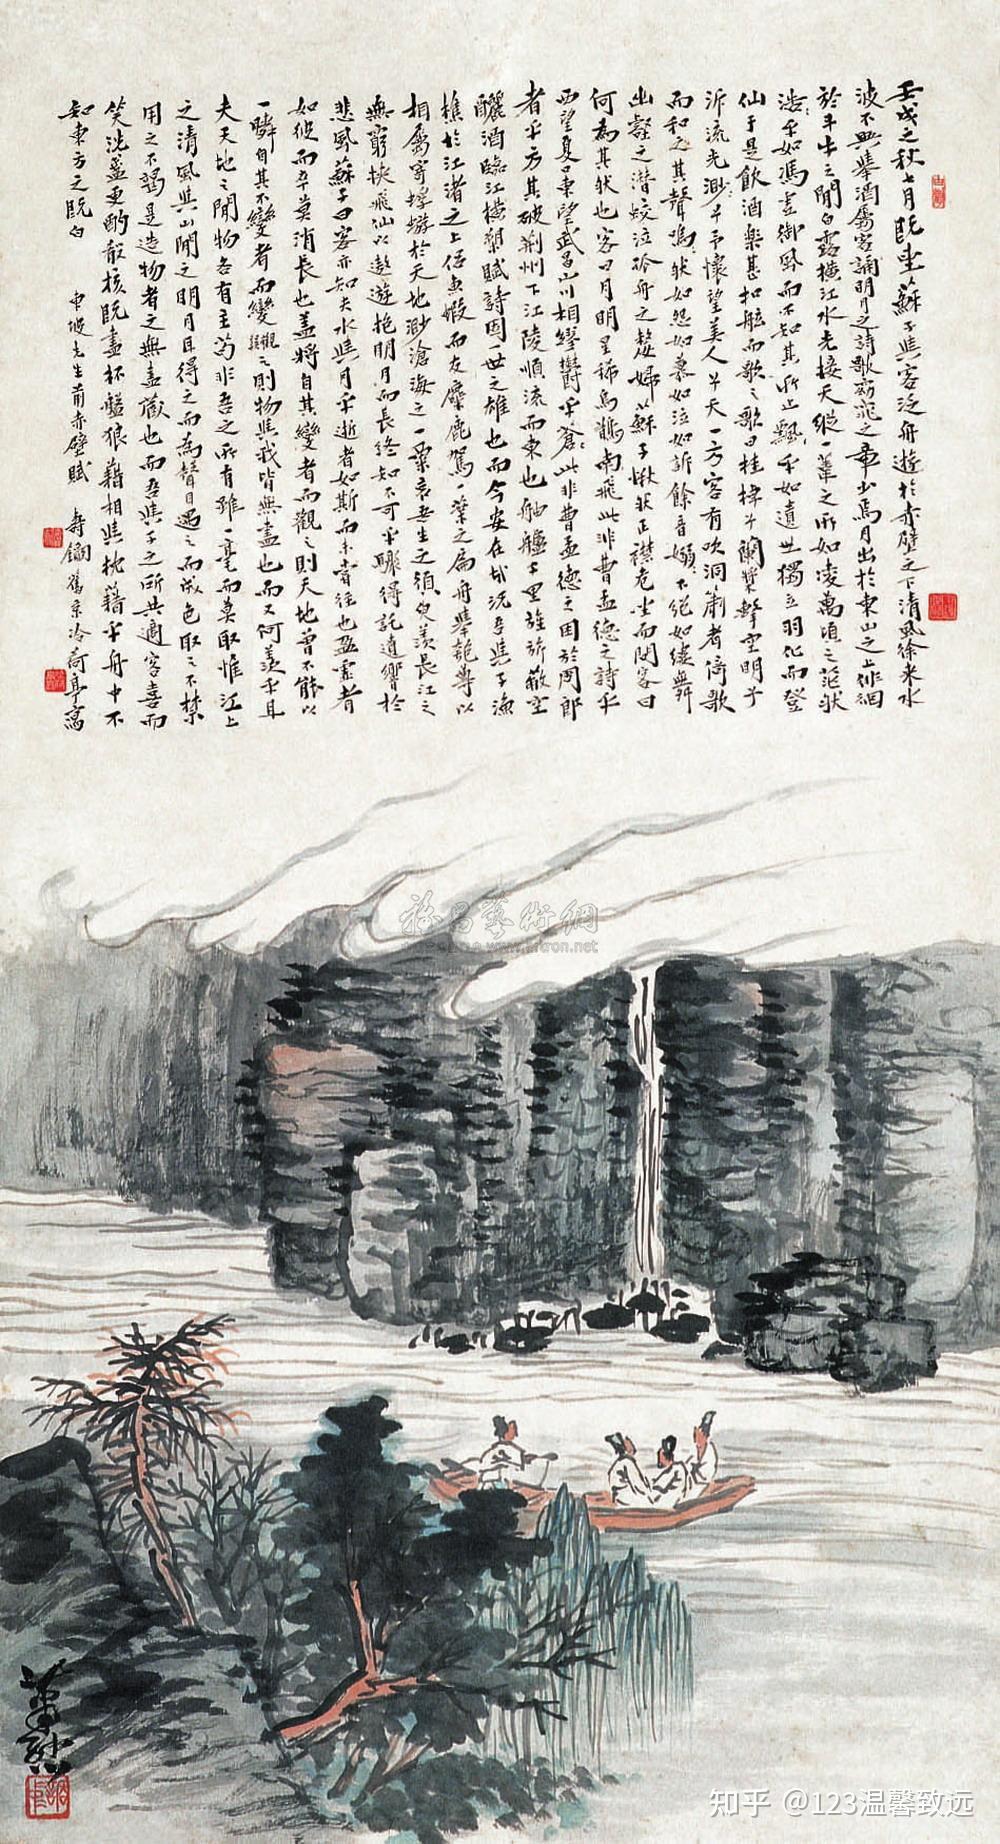 壬戌之秋七月既望蘇子與客泛舟遊於赤壁之下清風徐來水
波不興舉酒屬客誦明月之詩歌窈窕之章少焉月出於東山之上徘徊
於斗牛之間白露橫江水光接天縱一葦之所如凌萬頃之茫然
浩〻乎如馮虛御風而不知其所止飄〻乎如遺世獨立羽化而登
仙于是飲酒樂甚扣舷而歌之歌曰桂棹兮蘭槳擊空明兮
泝流光渺〻兮予懷望美人兮天一方客有吹洞簫者倚歌
而和之其聲嗚〻然如怨如慕如泣如訴餘音嫋〻不絕如縷舞
幽壑之潛蛟泣孤舟之嫠婦蘇子愀然正襟危坐而問客曰
何為其然也客曰月明星稀烏鵲南飛此非曹孟德之詩乎
西望夏口東望武昌山川相繆鬱乎蒼〻此非曹孟德之困於周郎
者乎方其破荆州下江陵順流而東也舳艫千里旌旂蔽空
釃酒臨江橫槊賦詩固一世之雄也而今安在哉況吾與子漁
樵於江渚之上侶魚蝦而友麋鹿駕一葉之扁舟舉匏尊以
相屬寄蜉蝣於天地渺滄海之一粟哀吾生之須臾羨長江之
無窮挾飛仙以遨遊抱明月而長終知不可乎驟得託遺響於
悲風蘇子曰客亦知夫水與月乎逝者如斯而未嘗往也盈虛者
如彼而卒莫消長也蓋將自其變者而觀之則天地曾不能以
一瞬自其不變者而變觀之則物與我皆無盡也而又何羨乎且
夫天地之間物各有主苟非吾之所有雖一毫而莫取惟江上
之清風與山間之明月耳得之而為聲目遇之而成色取之不禁
用之不竭是造物者之無盡藏也而吾與子之所共適客喜而
笑洗盞更酌殽核既盡杯盤狼藉相與枕藉乎舟中不
知東方之既白 東坡先生前赤壁賦 壽 舊京冷荷亭寫
知乎 @123温馨致远